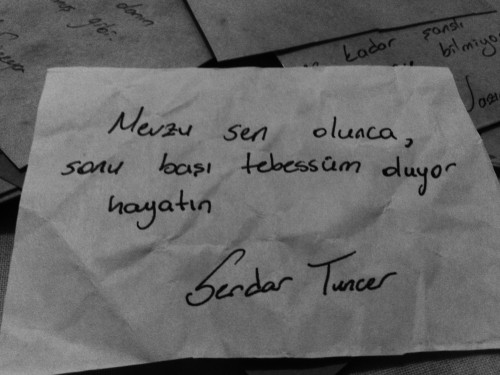 kadar şanslı
bilmiyo
Mevzu sen olunca,
sonu başı tebessüm duyor
hayatın
Serdar Tuncer